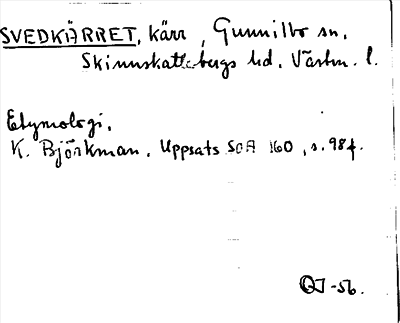 SVEDKÄRRET, kärr, Gunnilbo sn,
Skinnskattebergs hd. Västm. l.
Etymologi.
K. Björkman. Uppsats SOÄ 160, s. 98f.
OJ-56.